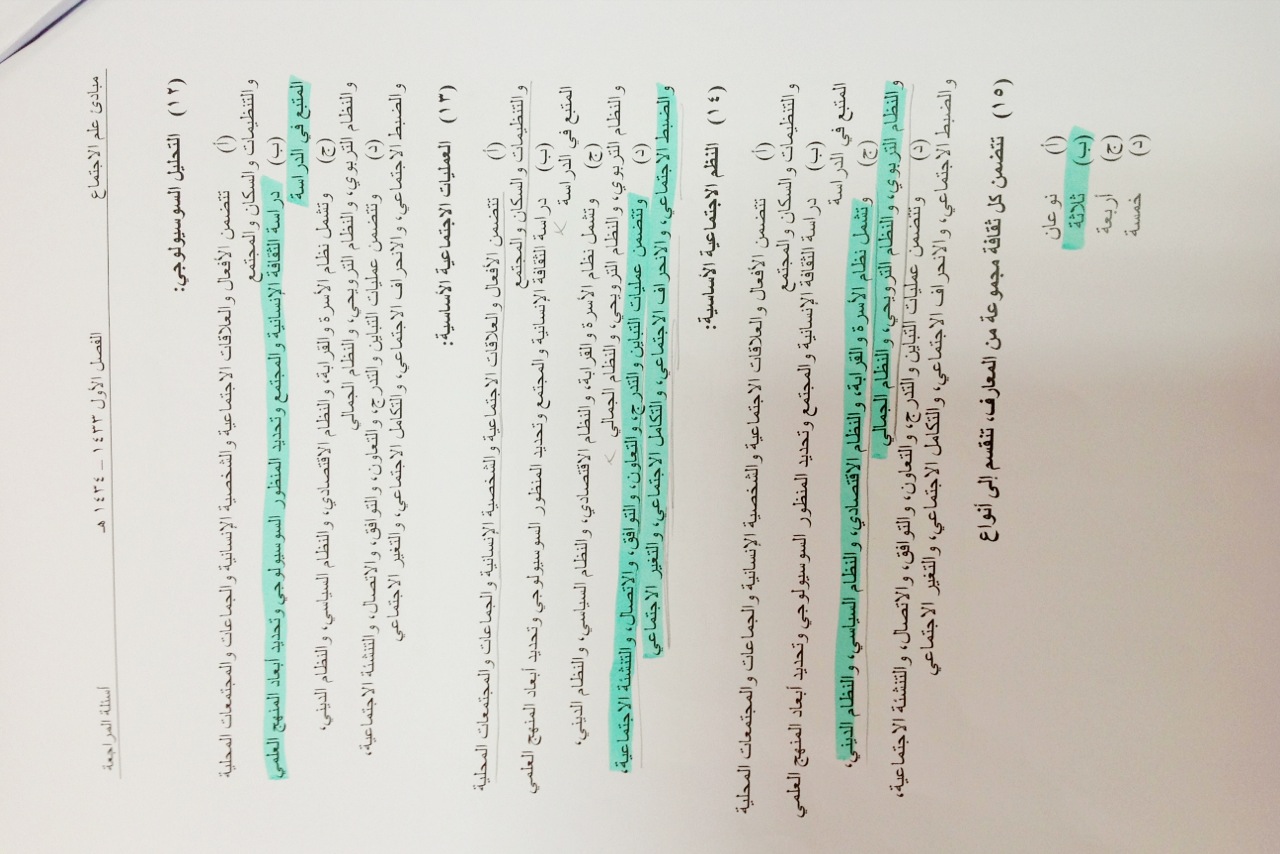 مبادئ علم الاجتماع الفصل الأول ١٤٣٣ – ١٤٣٤ هـ أسئلة المراجعة
(١٢) التحليل السوسيولوجي:
(أ) تتضمن الأفعال والعلاقات الاجتماعية والشخصية الإنسانية والجماعات والمجتمعات المحلية
والتنظيمات والسكان والمجتمع
(ب) دراسة الثقافة الإنسانية والمجتمع وتحديد المنظور السوسيولوجي وتحديد أبعاد المنهج العلمي
المتبع في الدراسة
(ج) وتشمل نظام الأسرة والقرابة، والنظام الاقتصادي، والنظام السياسي، والنظام الديني،
والنظام التربوي، والنظام الترويحي، والنظام الجمالي
(د) وتتضمن عمليات التباين والتدرج، والتعاون، والتوافق، والاتصال، والتنشئة الاجتماعية،
والضبط الاجتماعي، والانحراف الاجتماعي، والتكامل الاجتماعي، والتغير الاجتماعي
(١٣) العمليات الاجتماعية الأساسية:
(أ) تتضمن الأفعال والعلاقات الاجتماعية والشخصية الإنسانية والجماعات والمجتمعات المحلية
والتنظيمات والسكان والمجتمع
(ب) دراسة الثقافة الإنسانية والمجتمع وتحديد المنظور السوسيولوجي وتحديد أبعاد المنهج العلمي
المتبع في الدراسة
(ج) وتشمل نظام الأسرة والقرابة، والنظام الاقتصادي، والنظام السياسي، والنظام الديني،
والنظام التربوي، والنظام الترويحي، والنظام الجمالي
(د) وتتضمن عمليات التباين والتدرج، والتعاون، والتوافق، والاتصال، والتنشئة الاجتماعية،
والضبط الاجتماعي، والانحراف الاجتماعي، والتكامل الاجتماعي، والتغير الاجتماعي
(١٤) النظم الاجتماعية الأساسية:
(أ) تتضمن الأفعال والعلاقات الاجتماعية والشخصية الإنسانية والجماعات والمجتمعات المحلية
والتنظيمات والسكان والمجتمع
(ب) دراسة الثقافة الإنسانية والمجتمع وتحديد المنظور السوسيولوجي وتحديد أبعاد المنهج العلمي
المتبع في الدراسة
(ج) وتشمل نظام الأسرة والقرابة، والنظام الاقتصادي، والنظام السياسي، والنظام الديني،
والنظام التربوي، والنظام الترويحي، والنظام الجمالي
(د) وتتضمن عمليات التباين والتدرج، والتعاون، والتوافق، والاتصال، والتنشئة الاجتماعية،
والضبط الاجتماعي، والانحراف الاجتماعي، والتكامل الاجتماعي، والتغير الاجتماعي
(١٥) تتضمن كل ثقافة مجموعة من المعارف، تنقسم إلى أنواع
(أ) نوعان
(ب) ثلاثة
(ج) أربعة
(د) خمسة